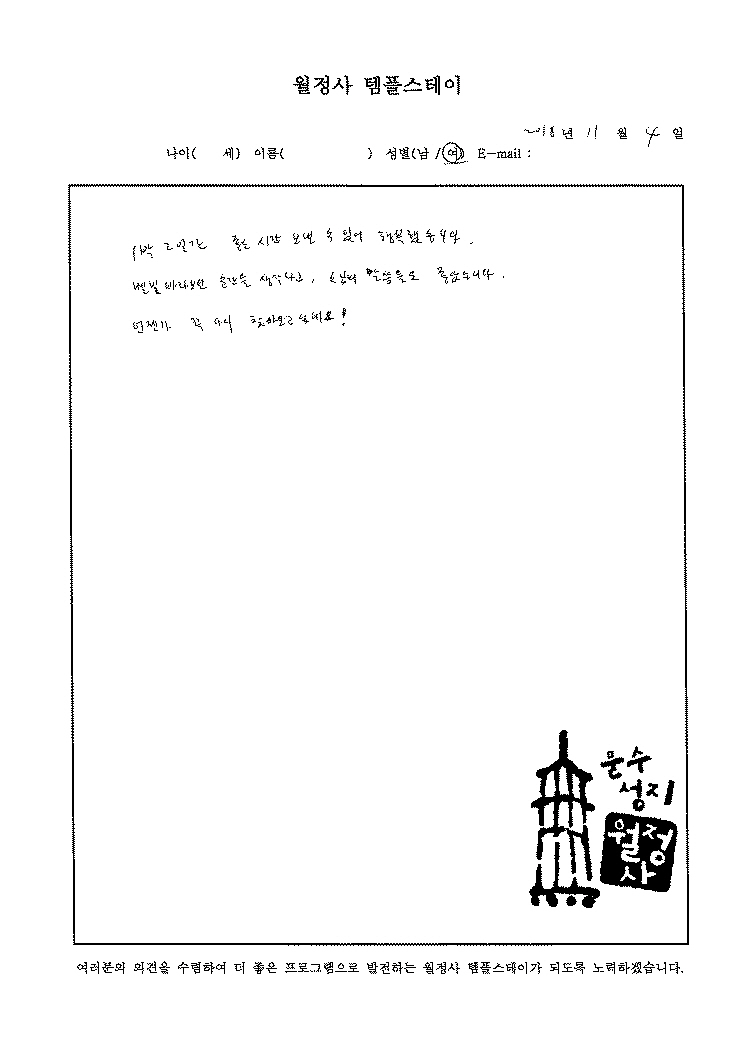 월정사 템플스테이
2018년 11 월 4 일
나이( 세) 이름( ) 성별(남 /여) E-mail :
1박 2일간 좋은 시간 보낼 수 있어 행복했습니다.
별빛 바라보던 순간을 생각나고, 스님의 말씀들도 좋았습니다.
언젠가 꼭 다시 찾아오고 싶네요!
문수
성지
월정
사
여러분의 의견을 수렴하여 더 좋은 프로그램으로 발전하는 월정사 템플스테이가 되도록 노력하겠습니다.